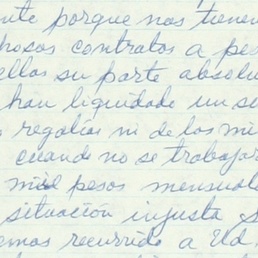 nte porque nos tienen
chosos contratos a pes
ellas su parte absolu
han liquidado un se
regalías ni de los mi
cuando no se trabajar
mil pesos mensuale
situación injusta s
emos recurrido a Ud.